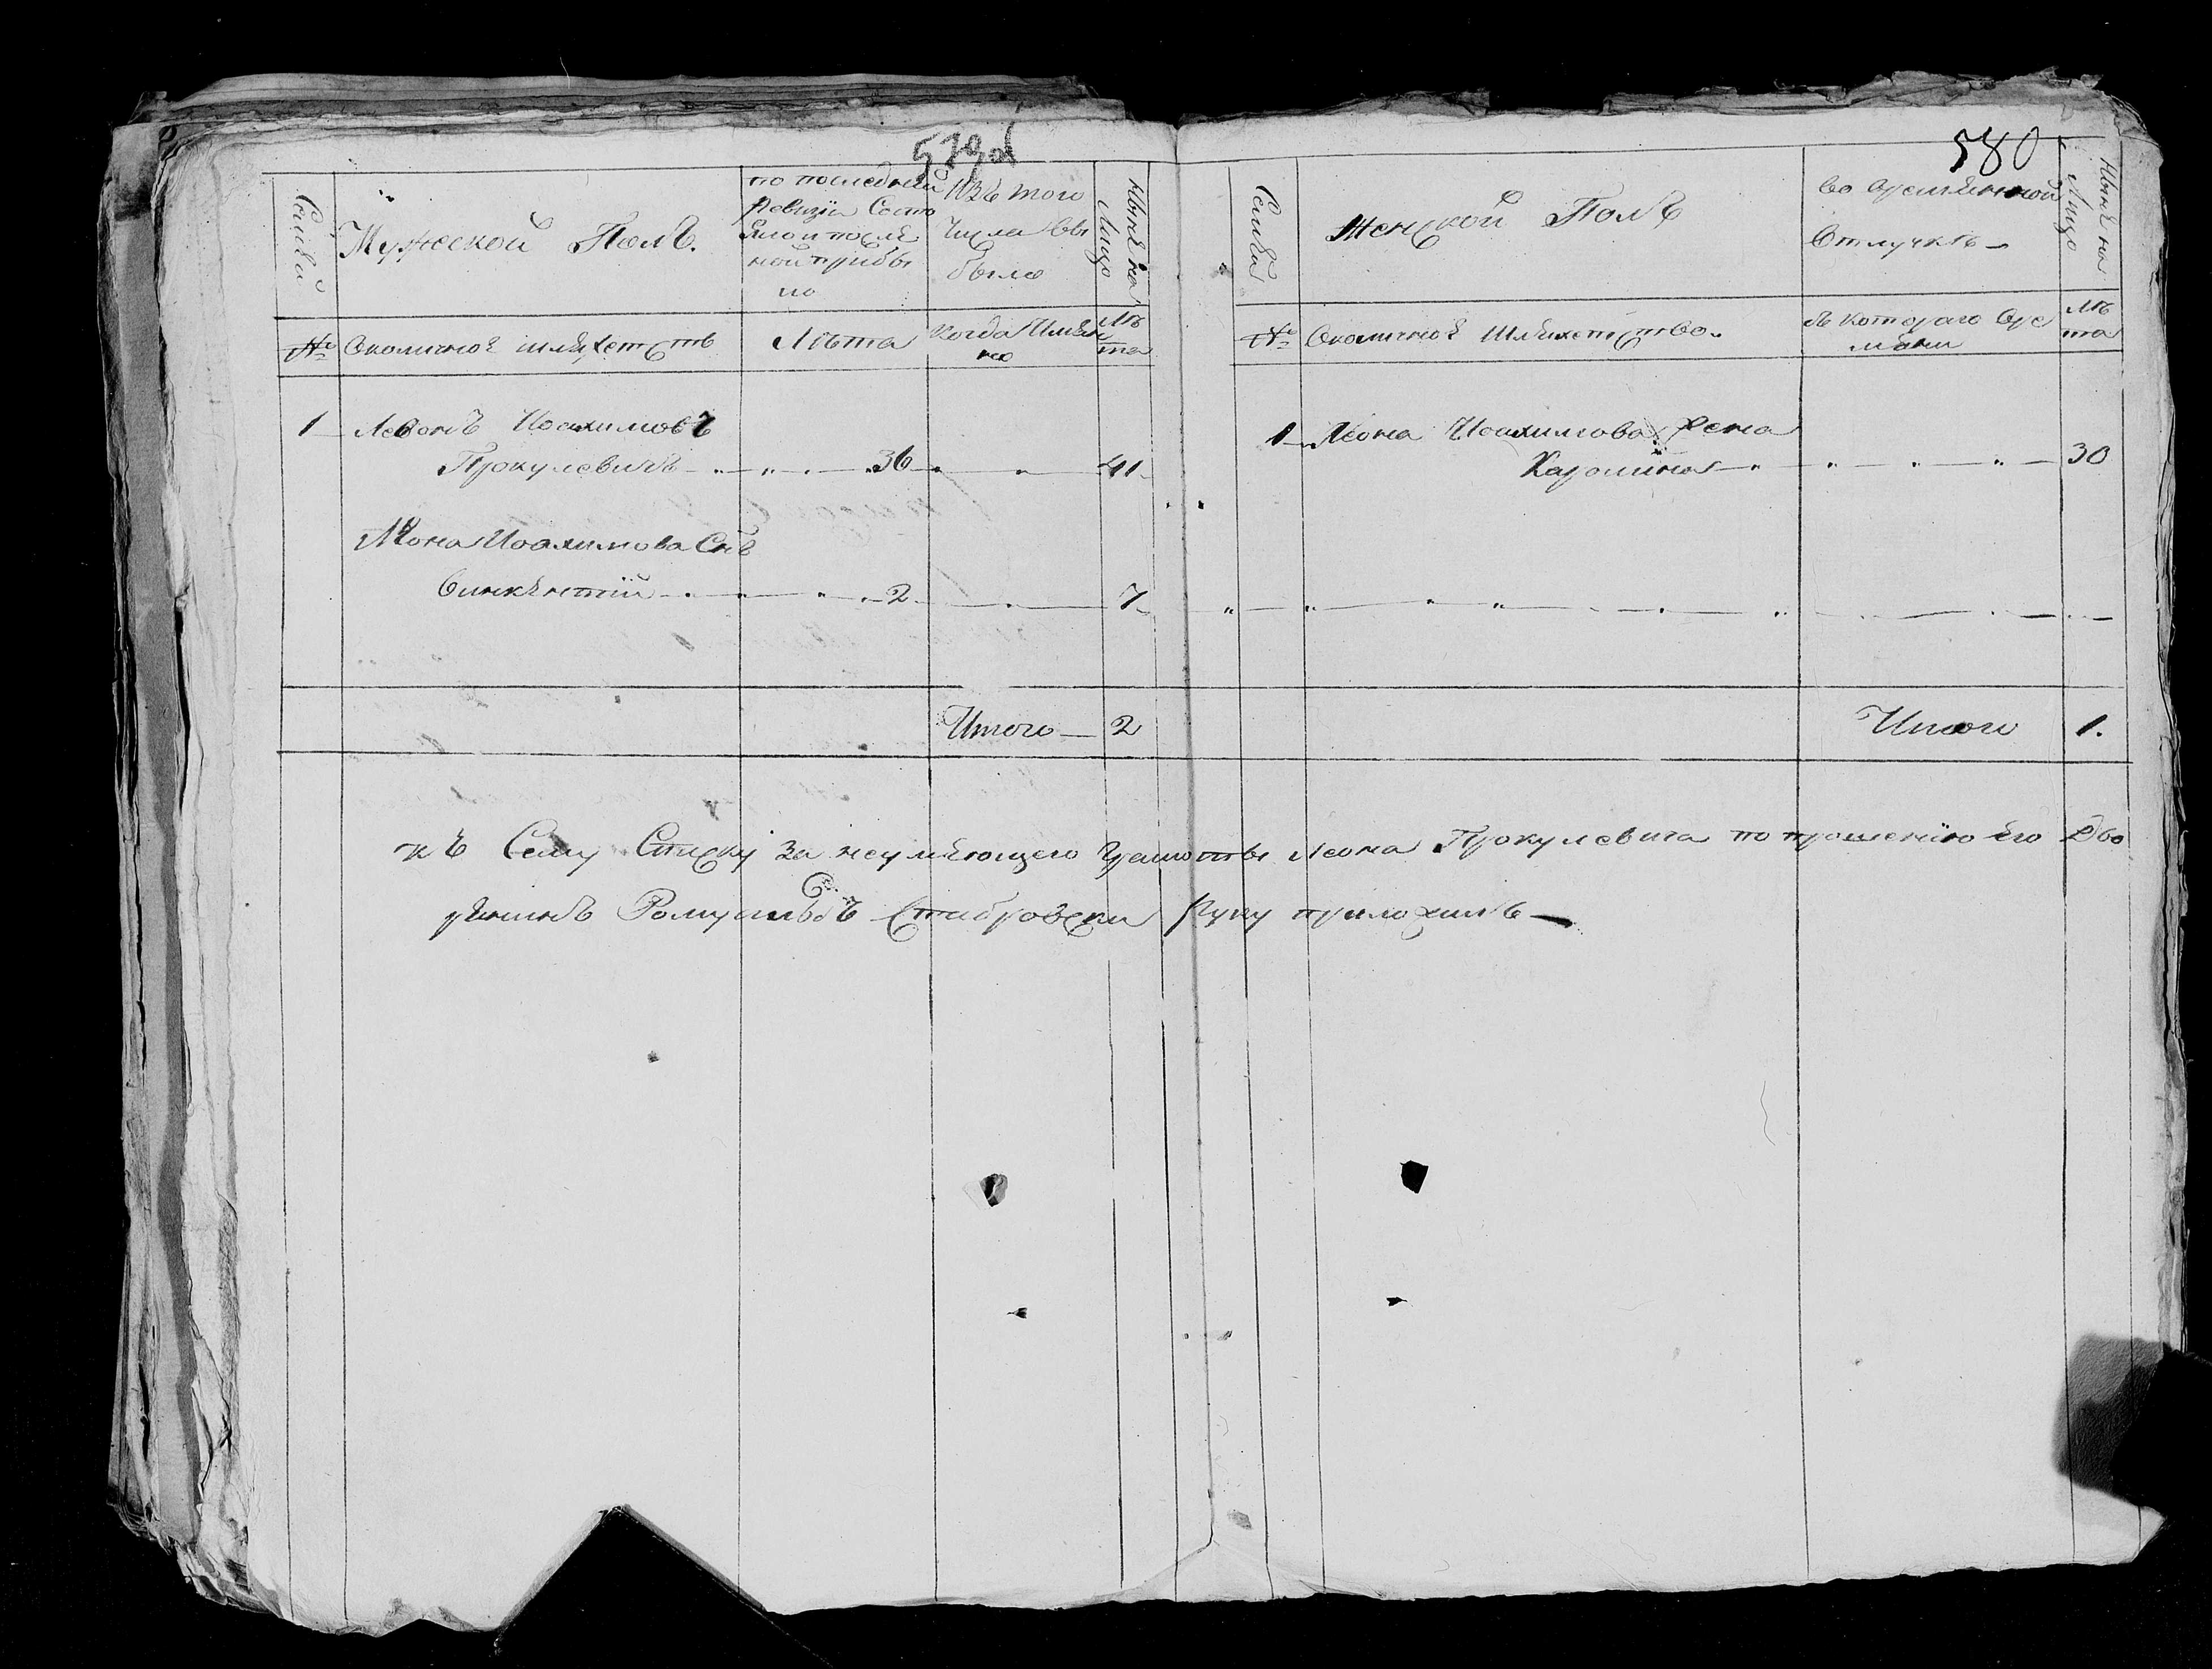 579об
Семья
Мужеской Полъ.
по последней
Ревизiи Состо
яло и посля
ной прибы
ло
Изъ того
Числа Вы
было
Нынѣ на
Лицо
№
Околичное шляхетств
Лѣта
Когда Имян
но
Лѣ
та
1 Левонъ Иоахимовъ
Прокулевичъ 36 41
Леона Иоахимова Снъ
Винкентiй 2 7
Итого 2
580
Семья
Женской Полъ
Во временной
Отлучкѣ
Нынѣ на
Лицо
№
Околичное Шляхетство.
съ Котораго Вре
мяни
Лѣ
та
1 Леона Иоахимова Жена
Каролина 30
Итого 1.
къ Сему Списку за неумеющего Грамоты Леона Прокулевича по прошенiю Его Дво
рянинъ Ромуальдъ Стабровски Руку приложилъ